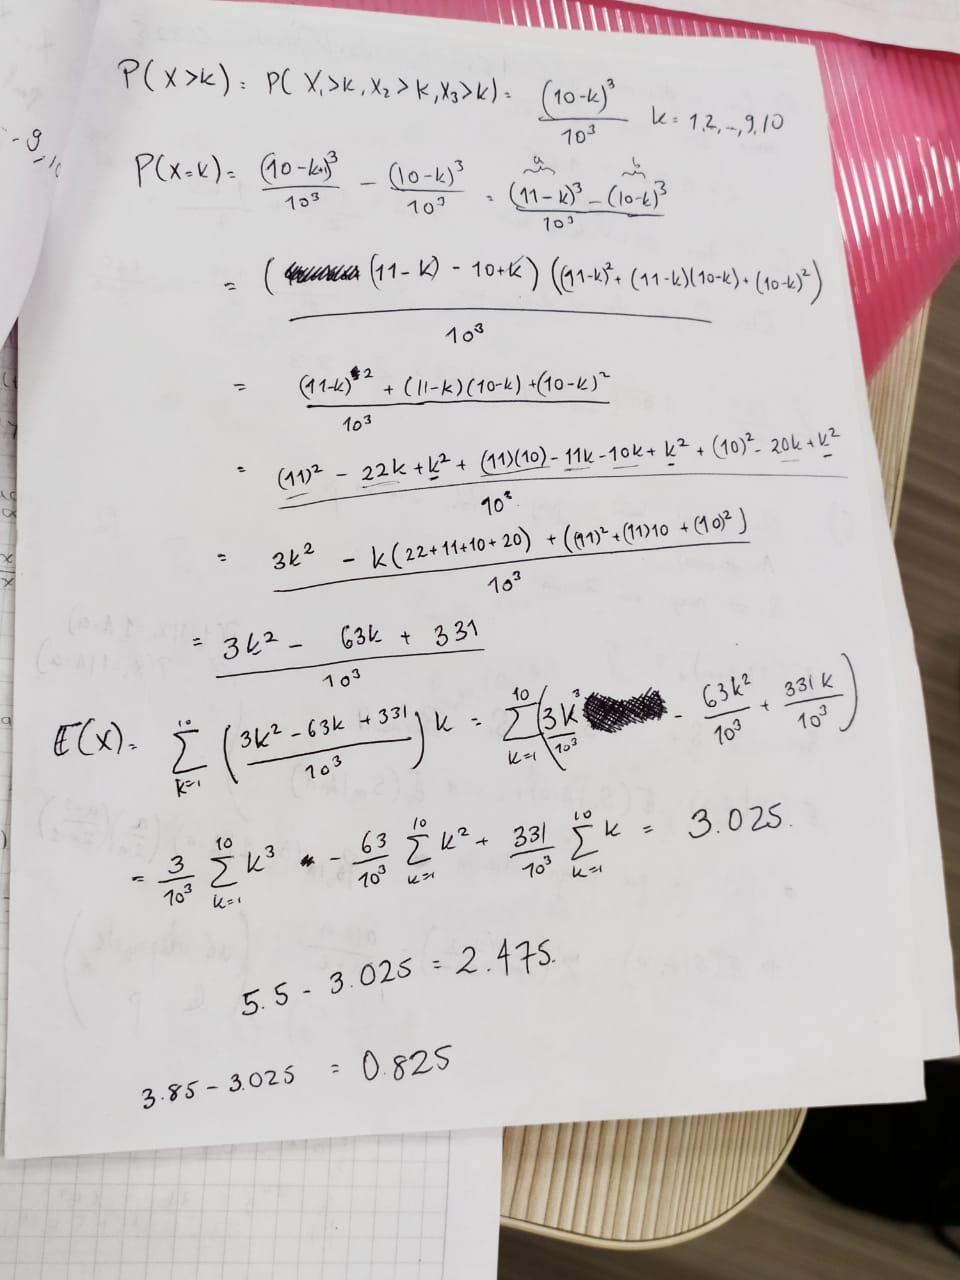 P(X>k) = P(X₁>k, X₂>k, X₃>k) = (10-k)³/10³ k = 1,2,-,9,10
P(X=k) = (10-k+1)³/10³ - (10-k)³/10³ = ((11-k)³ - (10-k)³)/10³
a b
= ((11-k) - 10+k) ((11-k)² + (11-k)(10-k) + (10-k)²)/10³
= ((11-k)² + (11-k)(10-k) + (10-k)²)/10³
= ((11)² - 22k + k² + (11)(10) - 11k - 10k + k² + (10)² - 20k + k²)/10³
= (3k² - k(22+11+10+20) + ((11)² + (11)10 + (10)²))/10³
= (3k² - 63k + 331)/10³
E(X) = Σ_{k=1}^{10} ((3k² - 63k + 331)/10³) k = Σ_{k=1}^{10} (3k³/10³ - 63k²/10³ + 331k/10³)
= 3/10³ Σ_{k=1}^{10} k³ - 63/10³ Σ_{k=1}^{10} k² + 331/10³ Σ_{k=1}^{10} k = 3.025.
5.5 - 3.025 = 2.475.
3.85 - 3.025 = 0.825